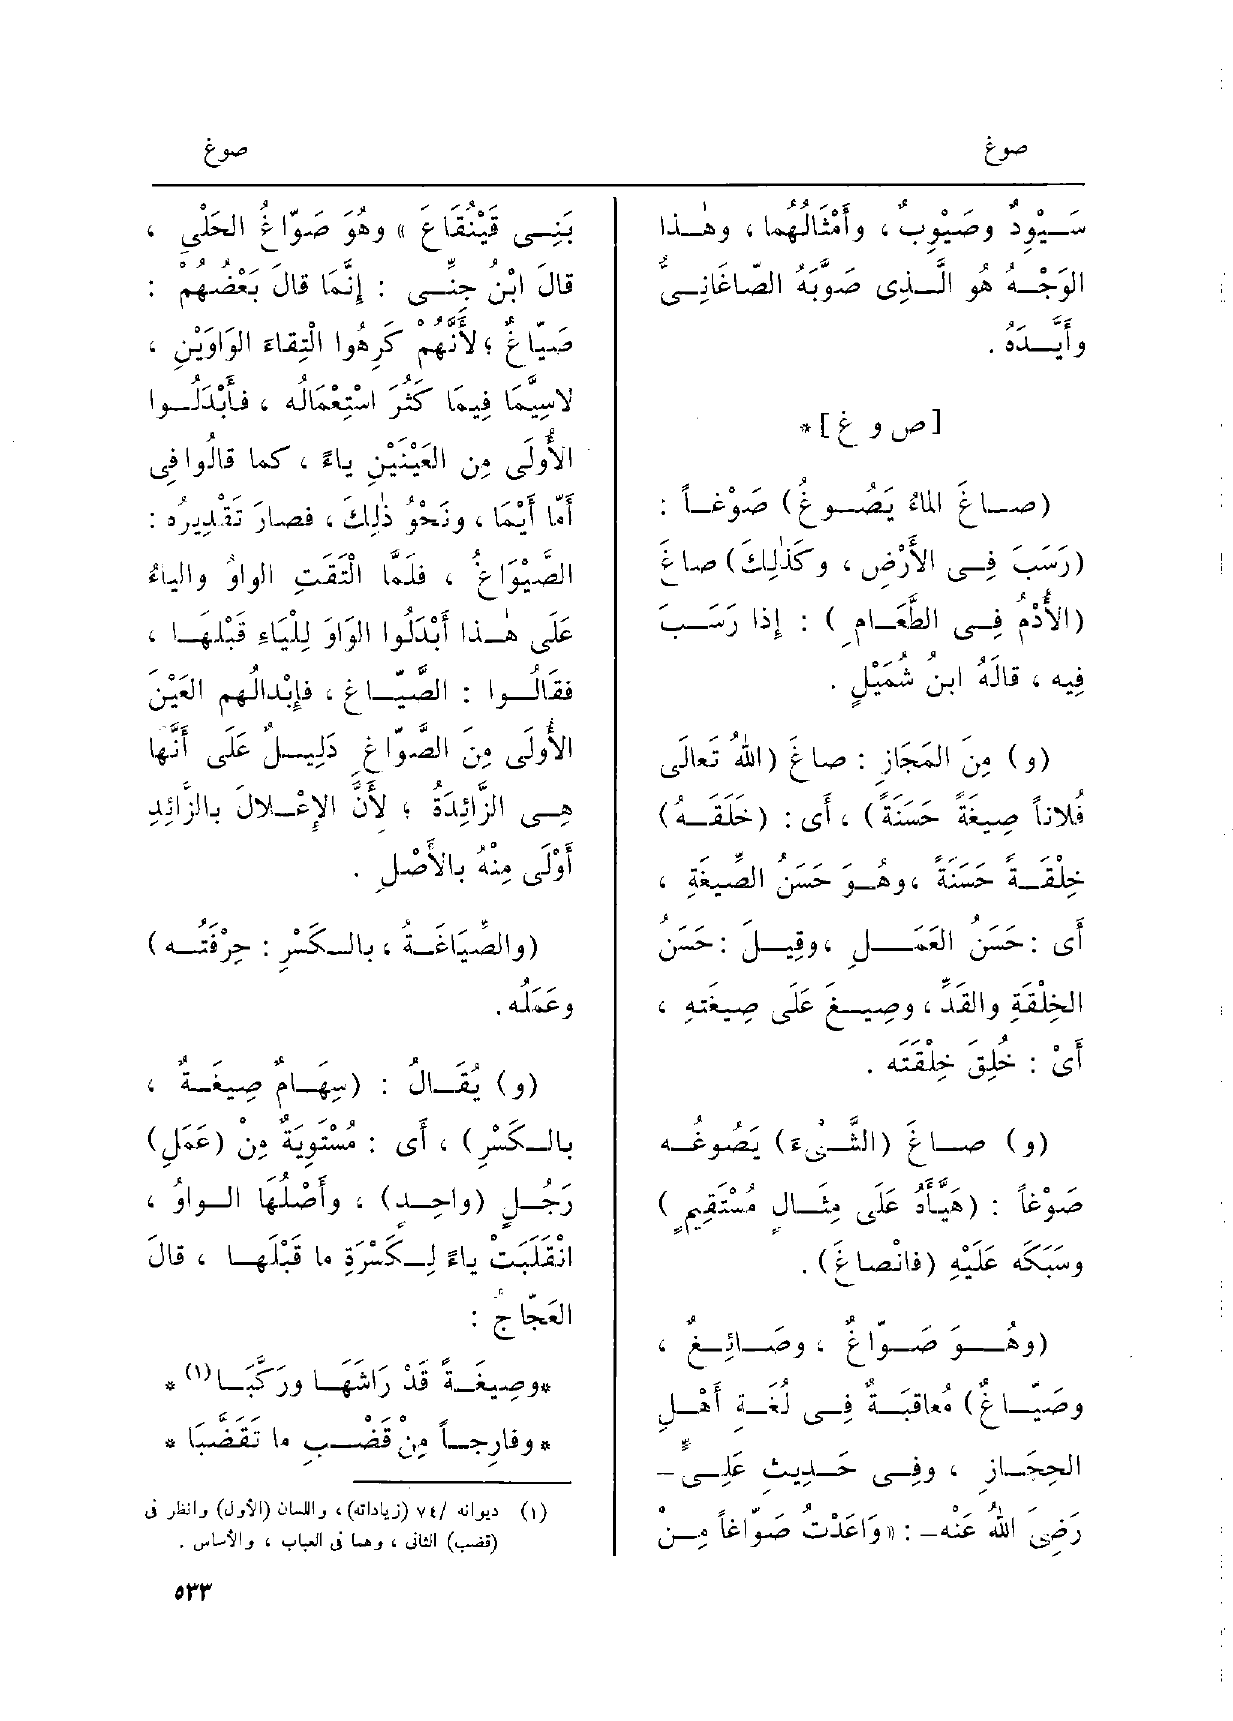 صوغ
صوغ
سَيْوِدٌ وصَيْوِبٌ ، وأَمْثَالُهُما ، وهٰذا
الوَجْهُ هُو الَّذِى صَوَّبَهُ الصّاغَانِىُّ
وأَيَّدَهُ .
[ ص و غ ] *
(صاغَ الماءُ يَصُوغُ) صَوْغاً :
(رَسَبَ فِى الأَرْضِ ، وكَذٰلِكَ) صاغَ
(الأُدْمُ فِى الطَّعَامِ ) : إِذا رَسَبَ
فِيه ، قالَهُ ابنُ شُمَيْلٍ .
(و) مِنَ المَجَازِ : صاغَ (اللهُ تَعالَى
فُلاناً صِيغَةً حَسَنَةً) ، أَى : (خَلَقَهُ)
خِلْقَةً حَسَنَةً ، وهُوَ حَسَنُ الصِّيغَةِ ،
أَى : حَسَنُ العَمَلِ ، وقِيلَ : حَسَنُ
الخِلْقَةِ والقَدِّ ، وصِيغَ عَلَى صِيغَتِهِ ،
أَىْ : خُلِقَ خِلْقَتَه .
(و) صاغَ (الشَّىْءَ) يَصُوغُه
صَوْغاً : (هَيَّأَهُ عَلَى مِثَالٍ مُسْتَقِيمٍ )
وسَبَكَه عَلَيْهِ (فانْصاغَ) .
(وهُو صَوّاغٌ ، وصَائِغٌ ،
وصَيّاغٌ) مُعاقَبَةٌ فِى لُغَةِ أَهْلِ
الحِجَازِ ، وفِى حَدِيثِ عَلِىٍّ -
رَضِىَ اللهُ عَنْه- : «وَاعَدْتُ صَوّاغاً مِنْ
بَنِى قَيْنُقَاعَ » وهُوَ صَوّاغُ الحَلْىِ ،
قالَ ابْنُ جِنِّى : إِنَّمَا قالَ بَعْضُهُمْ :
صَيّاغٌ ؛ لأَنَّهُمْ كَرِهُوا الْتِقاءَ الوَاوَيْنِ ،
لاسِيَّمَا فِيمَا كَثُرَ اسْتِعْمَالُه ، فأَبْدَلُوا
الأُولَى مِن العَيْنَيْنِ ياءً ، كما قالُوا فِى
أَمّا أَيْمَا ، ونَحْوُ ذٰلِكَ ، فصارَ تَقْدِيرُه :
الصَّيْوَاغُ ، فلَمَّا الْتَقَتِ الواوُ والياءُ
عَلَى هٰذا أَبْدَلُوا الوَاوَ لِلْيَاءِ قَبْلَها ،
فقَالُوا : الصَّيّاغ ، فإِبْدالُهم العَيْنَ
الأُولَى مِنَ الصَّوّاغِ دَلِيلٌ عَلَى أَنَّها
هِى الزّائِدَةُ ؛ لأَنَّ الإِعْلالَ بالزّائِدِ
أَوْلَى مِنْهُ بالأَصْلِ .
(والصِّيَاغَةُ ، بالكَسْرِ : حِرْفَتُه )
وعَمَلُه .
(و) يُقَالُ : (سِهَامٌ صِيغَةٌ ،
بالكَسْرِ) ، أَى : مُسْتَوِيَةٌ مِنْ (عَمَلِ)
رَجُلٍ (واحِدٍ) ، وأَصْلُهَا الواوُ ،
انْقَلَبَتْ ياءً لِكَسْرَةِ ما قَبْلَها ، قالَ
العَجّاجُ :
*وصِيغَةً قَدْ رَاشَهَا ورَكَّبَا (١) *
*وفارِجاً مِنْ قَضْبِ ما تَقَضَّبَا *
(١) ديوانه /٧٤ (زياداته) ، واللسان (الأول) وانظر فى
(قضب) الثانى ، وهما فى العباب ، والأساس .
٥٣٣